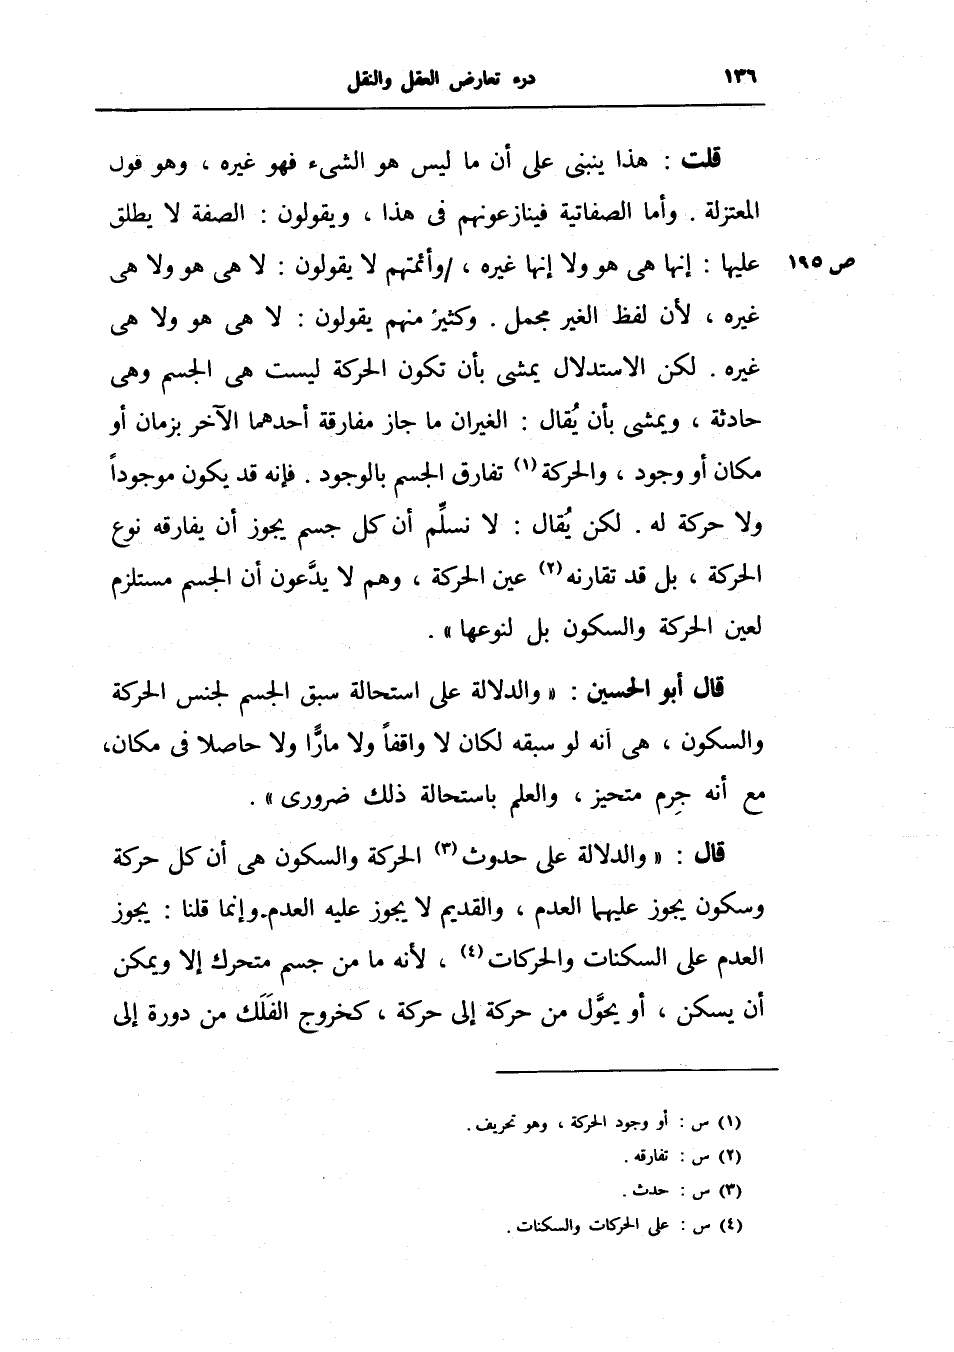 ١٣٦
درء تعارض العقل والنقل
قلت : هذا ينبنى على أن ما ليس هو الشىء فهو غيره ، وهو قول
المعتزلة . وأما الصفاتية فينازعونهم فى هذا ، ويقولون : الصفة لا يطلق
عليها : إنها هى هو ولا إنها غيره ، /وأئمتهم لا يقولون : لا هى هو ولا هى
ص ١٩٥
غيره ، لأن لفظ الغير مجمل . وكثيرٌ منهم يقولون : لا هى هو ولا هى
غيره . لكن الاستدلال يمشى بأن تكون الحركة ليست هى الجسم وهى
حادثة ، ويمشى بأن يُقال : الغيران ما جاز مفارقة أحدهما الآخر بزمان أو
مكان أو وجود ، والحركة (١) تفارق الجسم بالوجود . فإنه قد يكون موجوداً
ولا حركة له . لكن يُقال : لا نسلِّم أن كل جسم يجوز أن يفارقه نوع
الحركة ، بل قد تقارنه (٢) عين الحركة ، وهم لا يدَّعون أن الجسم مستلزم
لعين الحركة والسكون بل لنوعها » .
قال أبو الحسين : « والدلالة على استحالة سبق الجسم لجنس الحركة
والسكون ، هى أنه لو سبقه لكان لا واقفاً ولا مارًّا ولا حاصلا فى مكان،
مع أنه جِرم متحيز ، والعلم باستحالة ذلك ضرورى » .
قال : « والدلالة على حدوث (٣) الحركة والسكون هى أن كل حركة
وسكون يجوز عليهما العدم ، والقديم لا يجوز عليه العدم.وإنما قلنا : يجوز
العدم على السكنات والحركات (٤) ، لأنه ما من جسم متحرك إلا ويمكن
أن يسكن ، أو يحوَّل من حركة إلى حركة ، كخروج الفَلَك من دورة إلى
(١) س : أو وجود الحركة ، وهو تحريف .
(٢) س : تفارقه .
(٣) س : حدث .
(٤) س : على الحركات والسكنات .